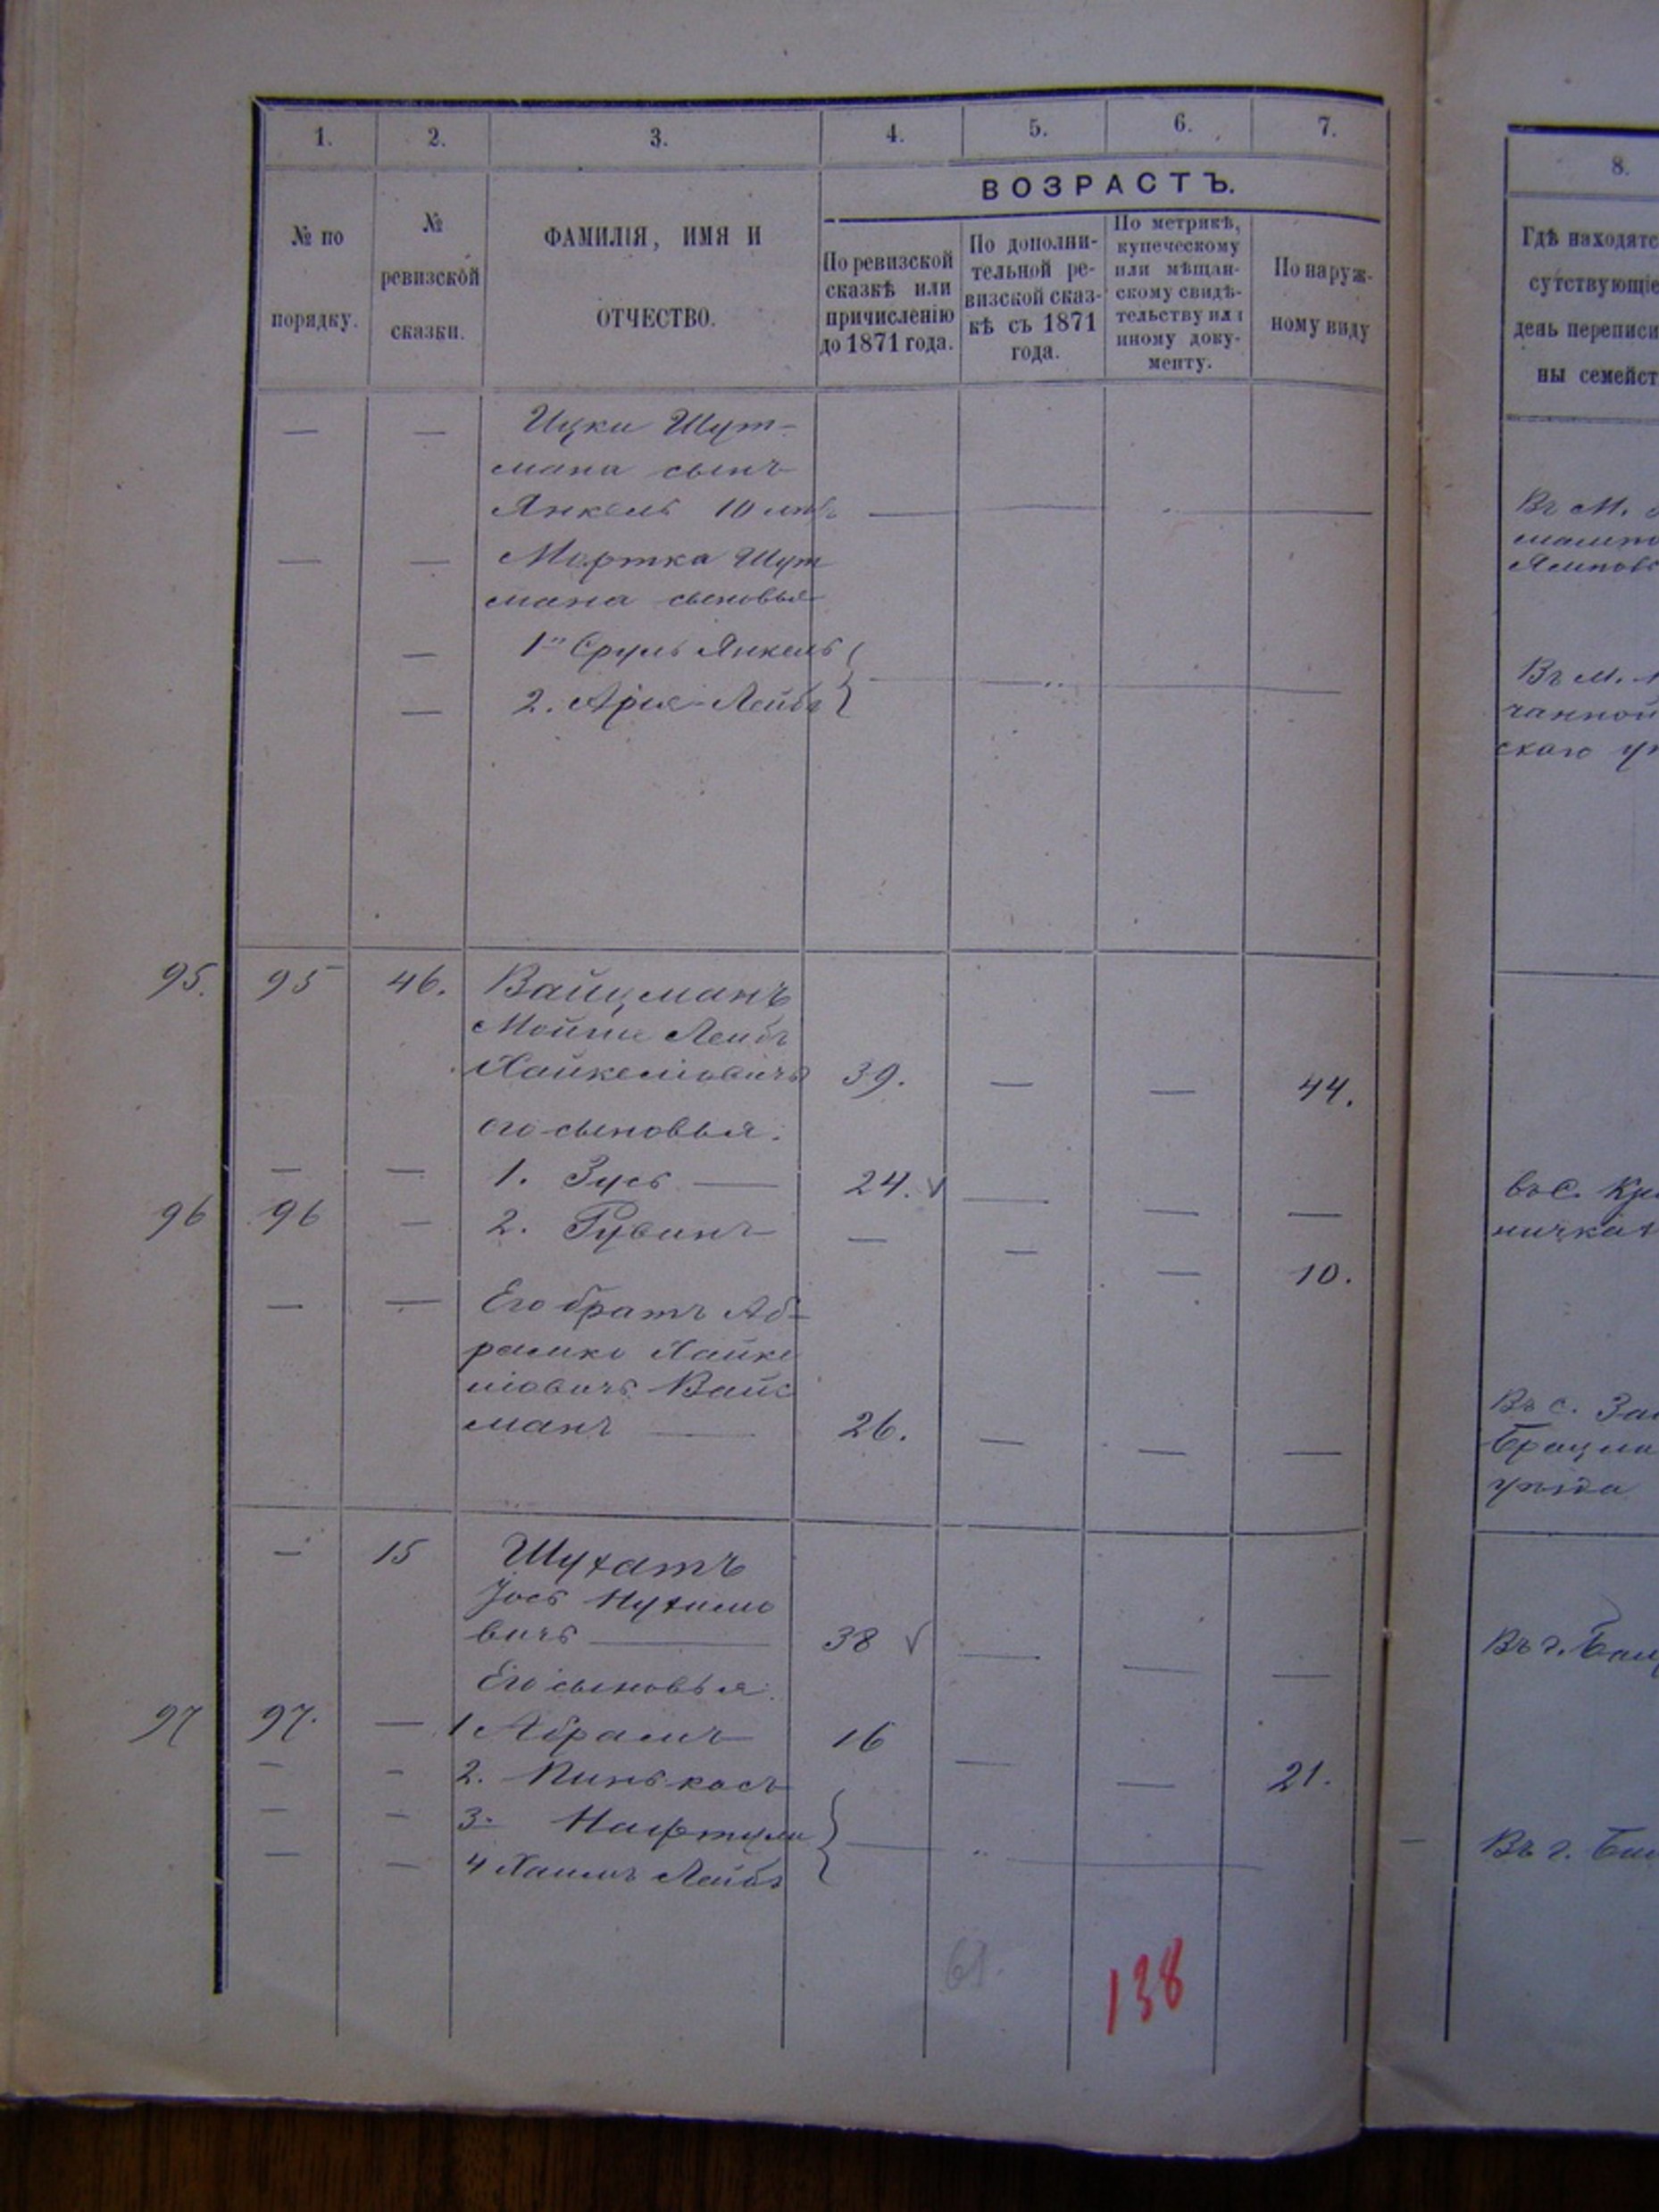 1. 2. 3. 4. 5. 6. 7.
ВОЗРАСТЪ.
№ по
порядку.
№
ревизской
сказки.
ФАМИЛІЯ, ИМЯ И
ОТЧЕСТВО.
По ревизской
сказкѣ или
причисленію
до 1871 года.
По дополни-
тельной ре-
визской сказ-
кѣ съ 1871
года.
По метрикѣ,
купеческому
или мѣщан-
скому свидѣ-
тельству или
иному доку-
менту.
По наруж-
ному виду
— — Ицки Шут-
мана сынъ
Янкель 10 лѣтъ
— — Мортка Шут
мана сыновья
— 1" Сруль Янкель
— 2. Арье-Лейбъ
95. 95 46. Вайцманъ
Мойше Лейбъ
Хайкелiовичъ 39. — — 44.
его сыновья:
— — 1. Зусь — 24. — — —
96 96 — 2. Рувинъ — — — 10.
— — Его братъ Аб-
рамко Хайке
ліовичъ Вайс
манъ — 26. — — —
— 15 Шухатъ
Іось Нухимо
вичъ — 38 — — —
Его сыновья:
97 97. — 1 Абрамъ 16 — — 21.
— — 2. Пинькасъ
— — 3. Нафтули
— — 4 Хаимъ Лейбъ
61.
138
8.
Гдѣ находятс
сутствующіе
день переписи
ны семейст
Въ М.
Въ м.
скаго
въ С.
ничках
Въ с.
уѣзда
Въ г.
Въ г.